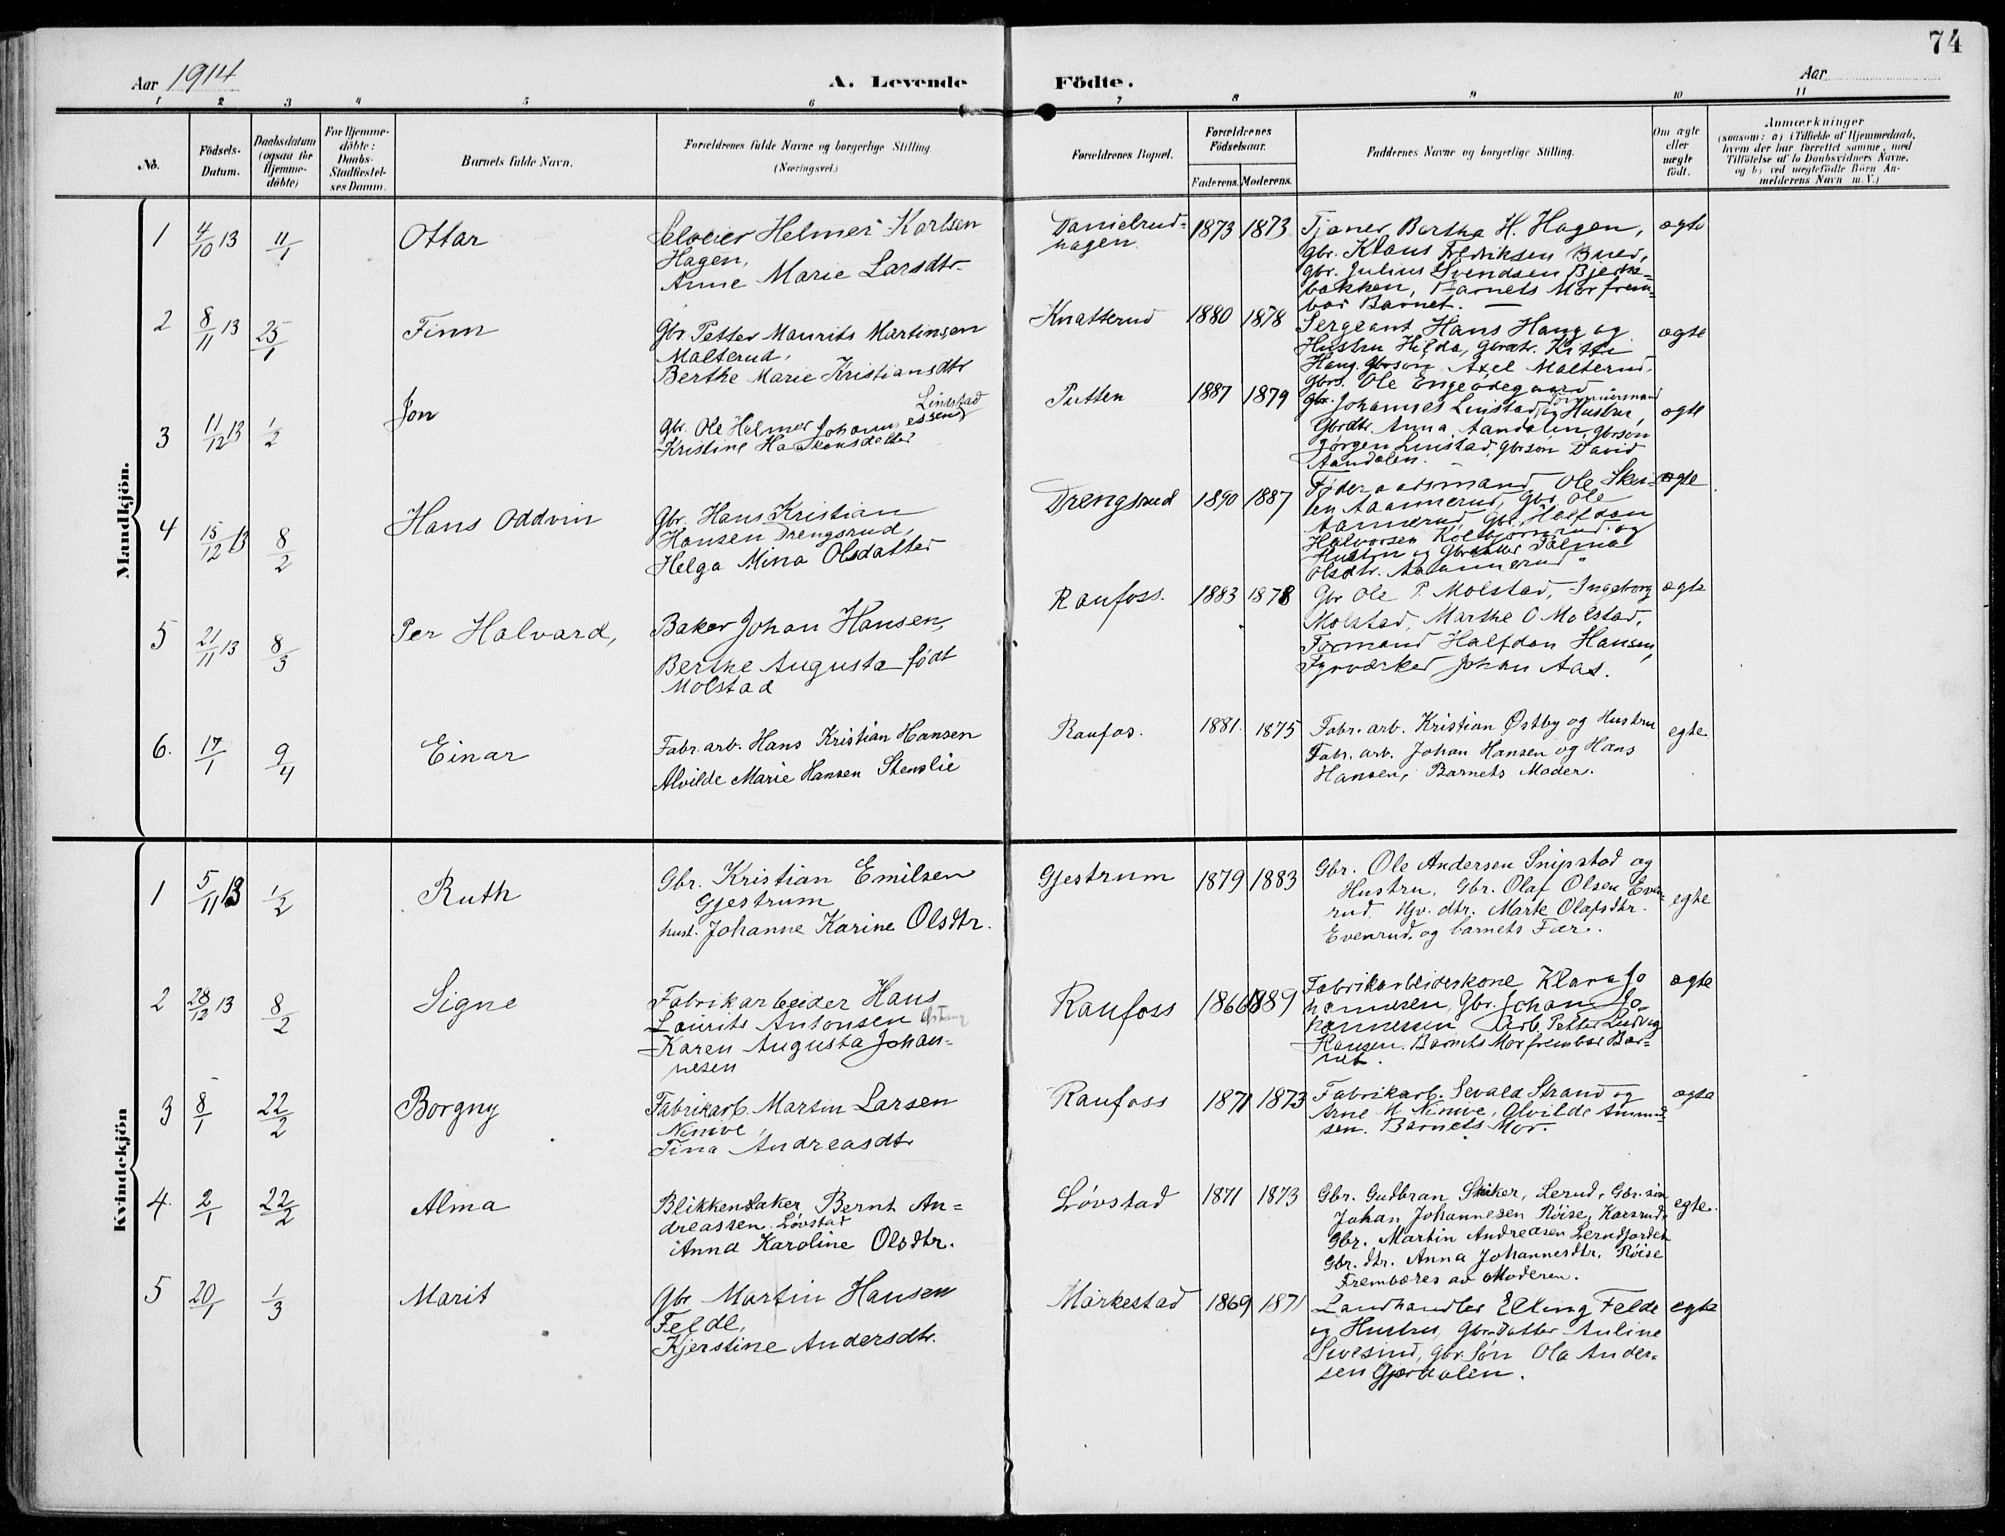 74
Aar 1914
A. Levende Födte.
Aar
1 2 3 4 5 6 7 8 9 10 11
No.
Födsels-Datum.
Daabsdatum (ogsaa for Hjemme-döbte)
For Hjemme-döbte: Daabs-Stadfæstel-ses Datum.
Barnets fulde Navn.
Forældrenes fulde Navne og borgerlige Stilling (Næringsvei.)
Forældrenes Bopæl.
Forældrenes Födselsaar.
Faderens. Moderens.
Faddernes Navne og borgerlige Stilling.
Om ægte eller uægte födt.
Anmærkninger
(saasom: a) i Tilfælde af Hjemmedaab,
hvem der har forrettet samme, med
Tilföielse af to Daabsvidners Navne,
og b) ved uægtefödte Börn An-
melderens Navn m. V.)
Mandkjön.
1 4/10 13 11/1 Ottar
Helmer Karlsen
Hagen,
Anne Marie Larsdtr.
Danielrud-
hagen
1873 1873
Tjener Berthe H. Hagen,
Gbr. Klaus Fredriksen Bued,
gbr. Julius Svendsen Bjerke-
bakken, Barnets Mor frem-
bar Barnet. —
ægte
2 8/11 13 25/1 Finn
Gbr Petter Maurits Martinsen
Malterud,
Berthe Marie Kristiansdtr
Knatterud 1880 1878
Sergeant Hans Haug og
Hustru Hilda, Gbrdtr. Kitti
Haug, Gbrsøn Axel Malterud.
Gbrs. Ole Engeødegaard
ægte
3 11/12 13 1/2 Jon
Lindstad
Gbr. Ole Helmer Johannessen,
Kristine Haakensdatter
Putten 1887 1879
Gbr. Johannes Linstad, og Hustru,
Gbrdtr. Anna Aandalen, Gbrsøn
Jørgen Linstad, Gbrsøn David
Aandalen.
ægte
4 15/12 13 8/2 Hans Oddvin
Gbr. Hans Kristian
Hansen Drengsrud,
Helga Mina Olsdatter
Drengsrud 1890 1887
Føderaadsmand Ole Skei-
Aannerud, Gbr. Ole
Aannerud, Gbr. Halfdan
Halvorsen Kolbjørnrud og
Hustru og Gbrdatter Palma
Olsdtr. Aannerud
ægte
5 21/11 13 8/3 Per Halvard,
Baker Johan Hansen,
Berthe Augusta født
Molstad
Raufoss. 1883 1878
Gbr Ole P. Molstad, Ingeborg
Molstad, Marthe O Molstad,
Formand Halfdan Hansen,
Fyrværker Johan Aas.
ægte
6. 17/1 9/4 Einar
Fabr. arb. Hans Kristian Hansen
Alvilde Marie Hansen Stenslie
Raufos. 1881. 1875
Fabr. arb. Kristian Østby og Hustru
Fabr. arb. Johan Hansen og Hans
Hansen, Barnets Moder.
egte.
Kvindekjön
1 5/11 13 1/2 Ruth
Gbr. Kristian Emilsen
Gjestrum
hust. Johanne Karine Olsdtr.
Gjestrum 1879 1883
Gbr. Ole Andersen Snipstad og
Hustru, Gbr. Olaf Olsen Even-
rud, Hjv. dtr. Marte Olafsdtr.
Evenrud, og barnets Far.
egte
2 28/12 13 8/2 Signe
Fabrikarbeider Hans
Laurits Antonsen
Karen Augusta Johan-
nesen
Raufoss 1866 1889
Fabrikarbeiderkone Klara Jo
hannesen, Gbr. Johan Jo-
hannessen Arb. Petter Ludvig
Hansen. Barnets Mor frembar Bar-
net.
ægte
3 8/1 22/2 Borgny
Fabrikarb. Martin Larsen
Ninive,
Tina Andreasdtr
Raufoss 1871 1873
Fabrikarb. Sevald Strand og
Arne M. Ninive, Alvilde Amund-
sen. Barnets Mor.
ægte
4. 2/1 22/2 Alma
Blikkenslaker Bernt An-
dreassen. Løvstad
Anna Karoline Olsdtr.
Løvstad 1871 1873
Gbr. Gudbran Skiker, Lerud, Gbr. søn
Johan Johannesen Røise, Karsrud,
Gbr. Martin Andreasen Lerudjordet
Gbr. dtr. Anna Johannesdtr. Røise
Frembæres av Moderen.
egte.
5 20/1 1/3 Marit
Gbr Martin Hansen
Felde,
Kjerstine Andersdtr.
Markestad 1869 1871
Landhandler Elling Felde
og Hustru, Gbr. datter Auline
Sivesind, Gbr. Søn Ola Ander-
sen Gjørdalen.
egte